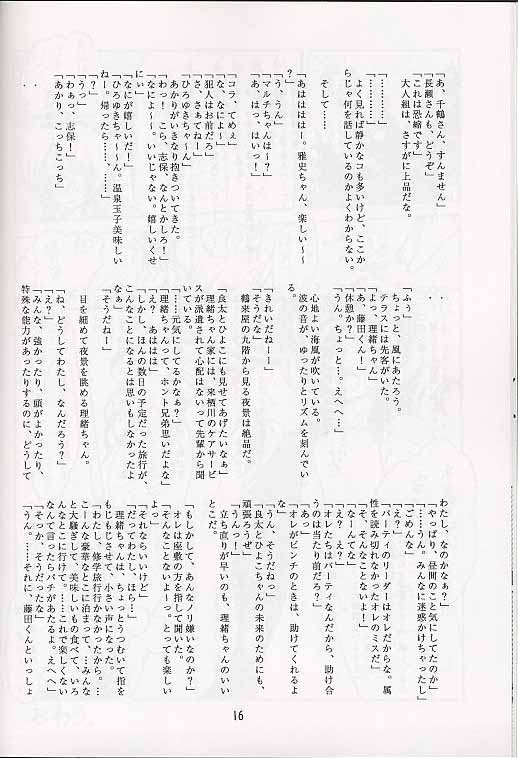 「あ、千鶴さん、すんません」
「長瀬さんも、どうぞ」
「これは恐縮です」
　大人組は、さすがに上品だな。
「…………」
「…………」
　よく見れば静かなコも多いけど、ここか
らじゃ何を話しているのかよくわからない。
　そして……
「あはははは―。雅史ちゃん、楽しい～
？」
「う、うん」
「マルチちゃんは～？」
「あ、はっ、はいっ！」
「コラ、てめぇ」
「な、なによ～」
「犯人はお前だろ」
「さ、さぁてねー」
「ひろゆきちゃ～ん」
　あかりがいきなり抱きついてきた。
「わっ！　こら、志保、なんとかしろ！」
「なによ～～、いいじゃない。嬉しいくせ
にぃ」
「なにが嬉しいだ！」
「ひろゆきちゃ～～ん。温泉玉子美味しい
ね―。帰ったら……、……」
「？」
「うっ」
「わぁっ、志保！」
「あかり、こっちこっち」
・
・
・
・
「ふぅ」
　ちょっと、風にあたろう。
　テラスには先客がいた。
「よっ、理緒ちゃん」
「あ、藤田くん！」
「休憩か？」
「うん。ちょっと…。えへへ…」
　心地よい海風が吹いている。
　波の音が、ゆったりとリズムを刻んでい
る。
「きれいだねー」
「そうだな」
　鶴来屋の九階から見る夜景は絶品だ。
「良太とひよこにも見せてあげたいなぁ」
　理緒ちゃん家には、来栖川のケアサービ
スが派遣されて心配はないって先輩から聞
いている。
「……元気にしてるかなぁ？」
「理緒ちゃんって、ホント兄弟思いだよな」
「え？　あははは」
「しかし、ほんの数日の予定だった旅行が、
こんなことになるとは思いもしなかったよ
なぁ」
「そうだねー」
　目を細めて夜景を眺める理緒ちゃん。
「ね、どうしてわたし、なんだろう？」
「え？」
「みんな、強かったり、頭がよかったり、
特殊な能力があったりするのに、どうして
わたし、なのかなぁ？」
「やっぱり、昼間のこと気にしてたのか」
「……うん。みんなに迷惑かけちゃったし」
「ごめんな」
「えっ？」
「パーティのリーダーはオレだからな。属
性を読み切れなかったオレのミスだ」
「そ、そんなことないよ！」
「なーんてな」
「え？　え？」
「オレたちはパーティなんだから、助け合
うのは当たり前だろ？」
「あっ」
「オレがピンチのときは、助けてくれるよ
な」
「うん、そうだねっ」
「良太とひよこちゃんの未来のためにも、
頑張ろうぜ」
「うんっ！」
　立ち直りが早いのも、理緒ちゃんのいい
とこだ。
「もしかして、あんなノリ嫌いなのか？」
　オレは座敷の方を指して聞いた。
「そんなことないよーっ。とっても楽しい
よ」
「それならいいけど」
「だってわたし、ほら…」
　理緒ちゃんは、ちょっとうつむいて指を
もじもじさせて、小さい声になった。
「わたし、修学旅行行かなかったから。…
こんな豪華なとこに泊まって、…みんな
と大騒ぎして、美味しいもの食べて、いろ
んなとこに行けて。……これで楽しくない
なんて言ったらバチがあたるよ。えへへ」
「そっか、そうだったな」
「うん。……それに、藤田くんといっしょ
16